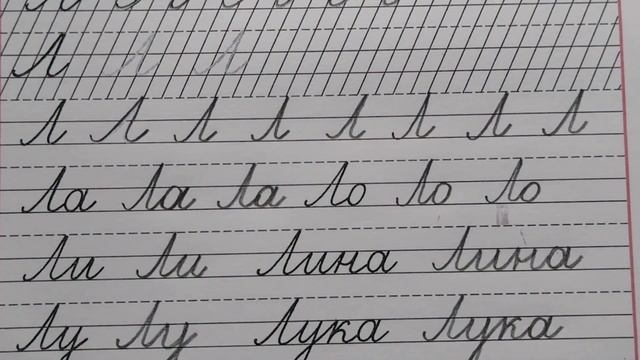 Л Л Л
Л Л Л Л Л Л Л Л
Ла Ла Ла Ло Ло Ло
Ли Ли Лина Лина
Лу Лу Лука Лука